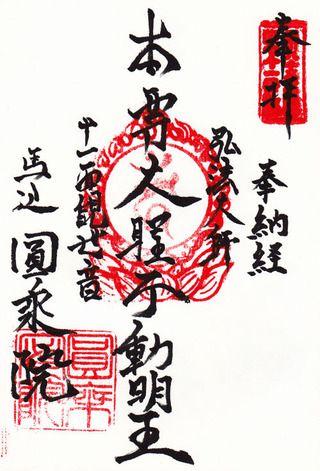 奉拝
奉納経
弘法大師
本尊大聖不動明王
十一面観世音
馬込 圓乗院